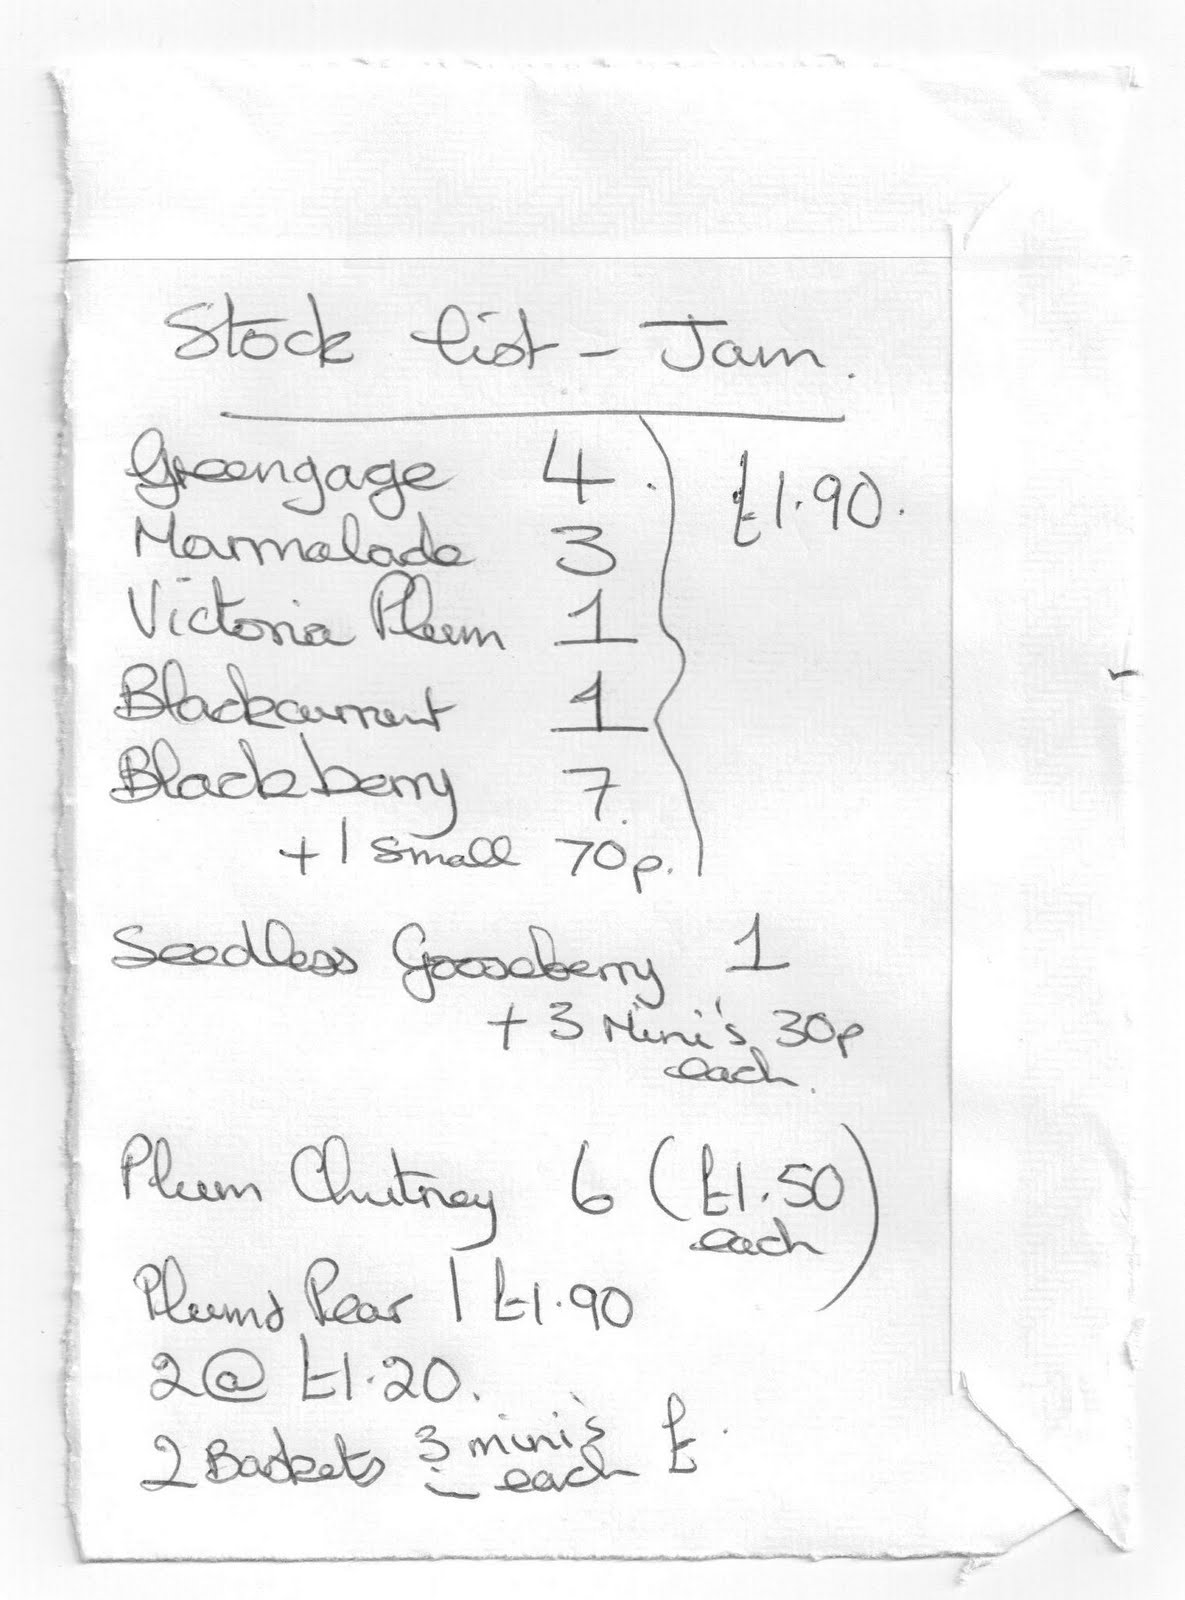 Stock list - Jam.
Greengage 4. £1.90.
Marmalade 3
Victoria Plum 1
Blackcurrent 1
Blackberry 7.
+ 1 small 70p.
Seedless Gooseberry 1
+ 3 Mini's 30p
each.
Plum Chutney 6 (£1.50
each)
Plum & Pear 1 £1.90
2 @ £1.20.
2 Baskets 3 mini's £
each